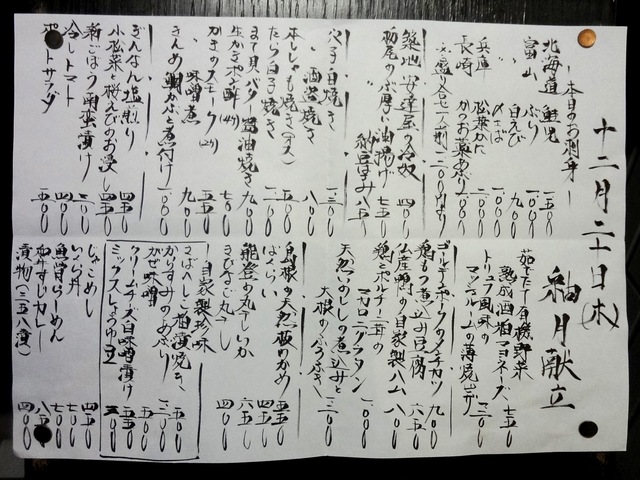 十二月二十日(木)
釉月献立
本日のお刺身
北海道 鮭児 一五〇〇
富山 ぶり 一〇〇〇
〃 白えび 一〇〇〇
兵庫 〆さば 九〇〇
〃 松葉がに
長崎 かつお藁あぶり 一〇〇〇
築地 安達屋の冷奴 四〇〇
栃尾のぶ厚い油揚げ 七五〇
〃 納豆はさみ 八五〇
穴子白焼き 一三〇〇
〃 酒盗焼き
本ししゃも焼き(オス) 八〇〇
たら白子焼き 一五〇〇
まて貝バター醤油焼き 九〇〇
生かきポン酢 七〇〇
かきのスモーク
〃 味噌煮 九〇〇
きんめ鯛かぶと煮付け 一八〇〇
ぎんなん塩煎り 五五〇
小松菜と桜えびのお浸し 四五〇
新ごぼう南蛮漬け
冷しトマト 四〇〇
ポテトサラダ 五〇〇
茹でたて有機野菜
熟成酒粕マヨネーズ 七五〇
トリュフ風味の
マッシュルームの薄焼ピザ 一三〇〇
ゴールデンポークのメンチカツ 九〇〇
鶏もつ煮込み豆腐 六五〇
仏産鴨の自家製ハム 八〇〇
鶏とポルチーニ茸の
マカロニグラタン 一〇〇〇
天然いのししの煮込みと
大根のふろふき 一三〇〇
島根の天然板わかめ 五五〇
ばくらい 四五〇
能登の丸干しいか 六五〇
きびなご丸干し 四〇〇
自家製珍味
さばへしこ酒漬焼き 五五〇
からすみのあぶり 一三〇〇
かに味噌 五〇〇
クリームチーズ白味噌漬け 五〇〇
ミックスしょうゆ豆 三〇〇
じゃこめし 四五〇
いくら丼
魚醤らーめん 七〇〇
和牛すじカレー 八五〇
漬物(三五八漬) 四〇〇